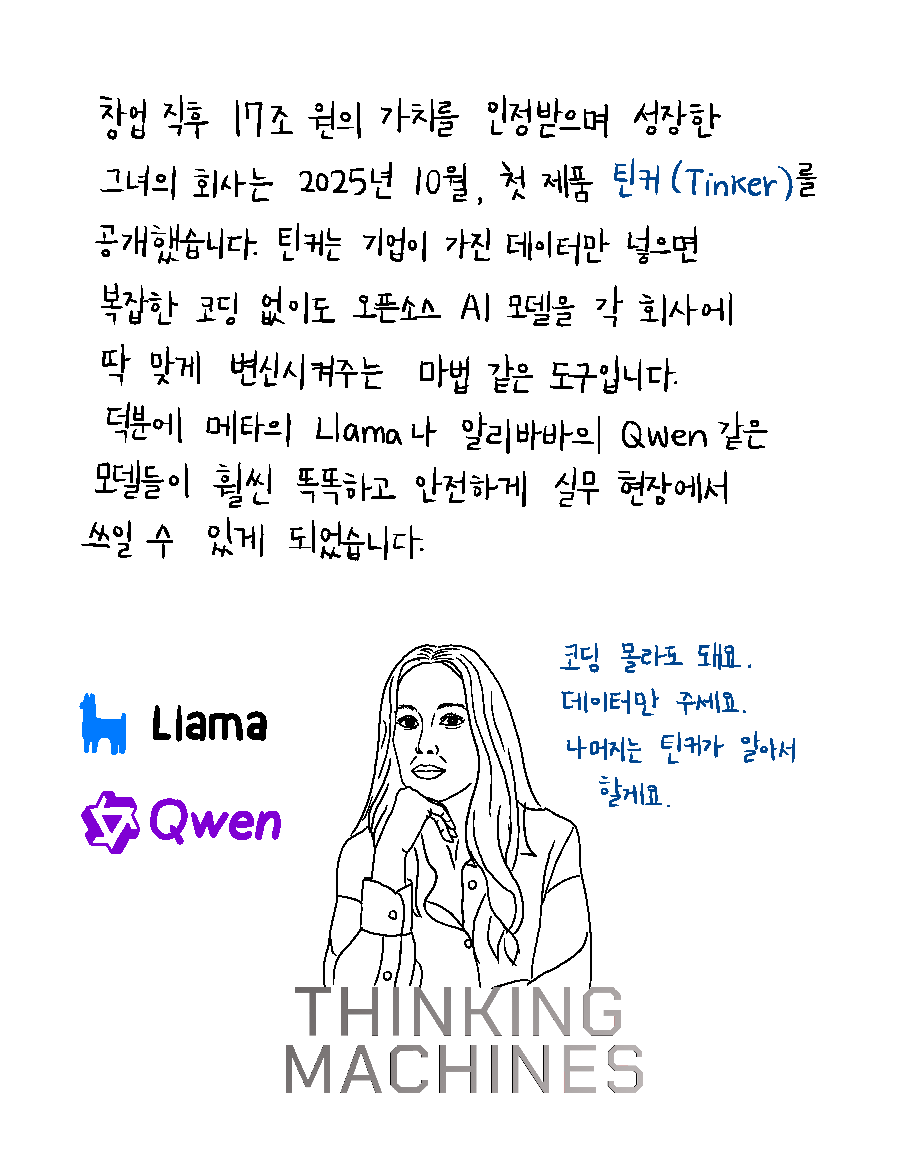 창업 직후 17조 원의 가치를 인정받으며 성장한
그녀의 회사는 2025년 10월, 첫 제품 틴커(Tinker)를
공개했습니다. 틴커는 기업이 가진 데이터만 넣으면
복잡한 코딩 없이도 오픈소스 AI 모델을 각 회사에
딱 맞게 변신시켜주는 마법 같은 도구입니다.
덕분에 메타의 Llama나 알리바바의 Qwen 같은
모델들이 훨씬 똑똑하고 안전하게 실무 현장에서
쓰일 수 있게 되었습니다.
코딩 몰라도 돼요.
데이터만 주세요.
나머지는 틴커가 알아서
할게요.
Llama
Qwen
THINKING
MACHINES